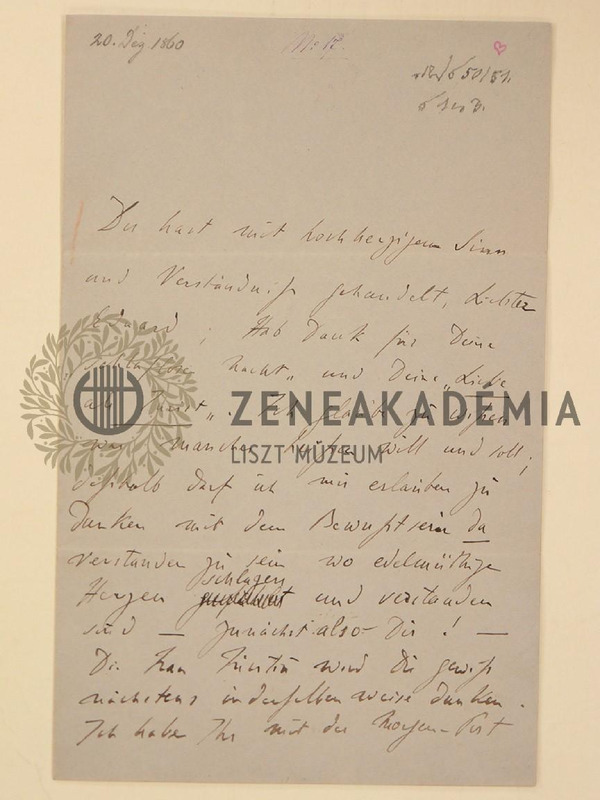 20. Dez 1860
No 12.
50/51.
Du hast mit hochherzigem Sinn
und Verständniss gehandelt, Liebster
Eduard; Hab Dank für Deine
„schlaflose Nacht„ und Deine „Liebe
ZENEAKADÉMIA
LISZT MÚZEUM
als „. Ich glaube zu wissen
was mancher will und soll;
desshalb darf ich mir erlauben zu
danken mit dem Bewusstsein da
verstanden zu sein wo edelmüthige
Herzen schlagen und verstanden
sind — zunächst also Dir! —
Die Frau Fürstin wird Dir gewiss
nächstens in derselben weise danken.
Ich habe Ihr mit der Morgen-Post